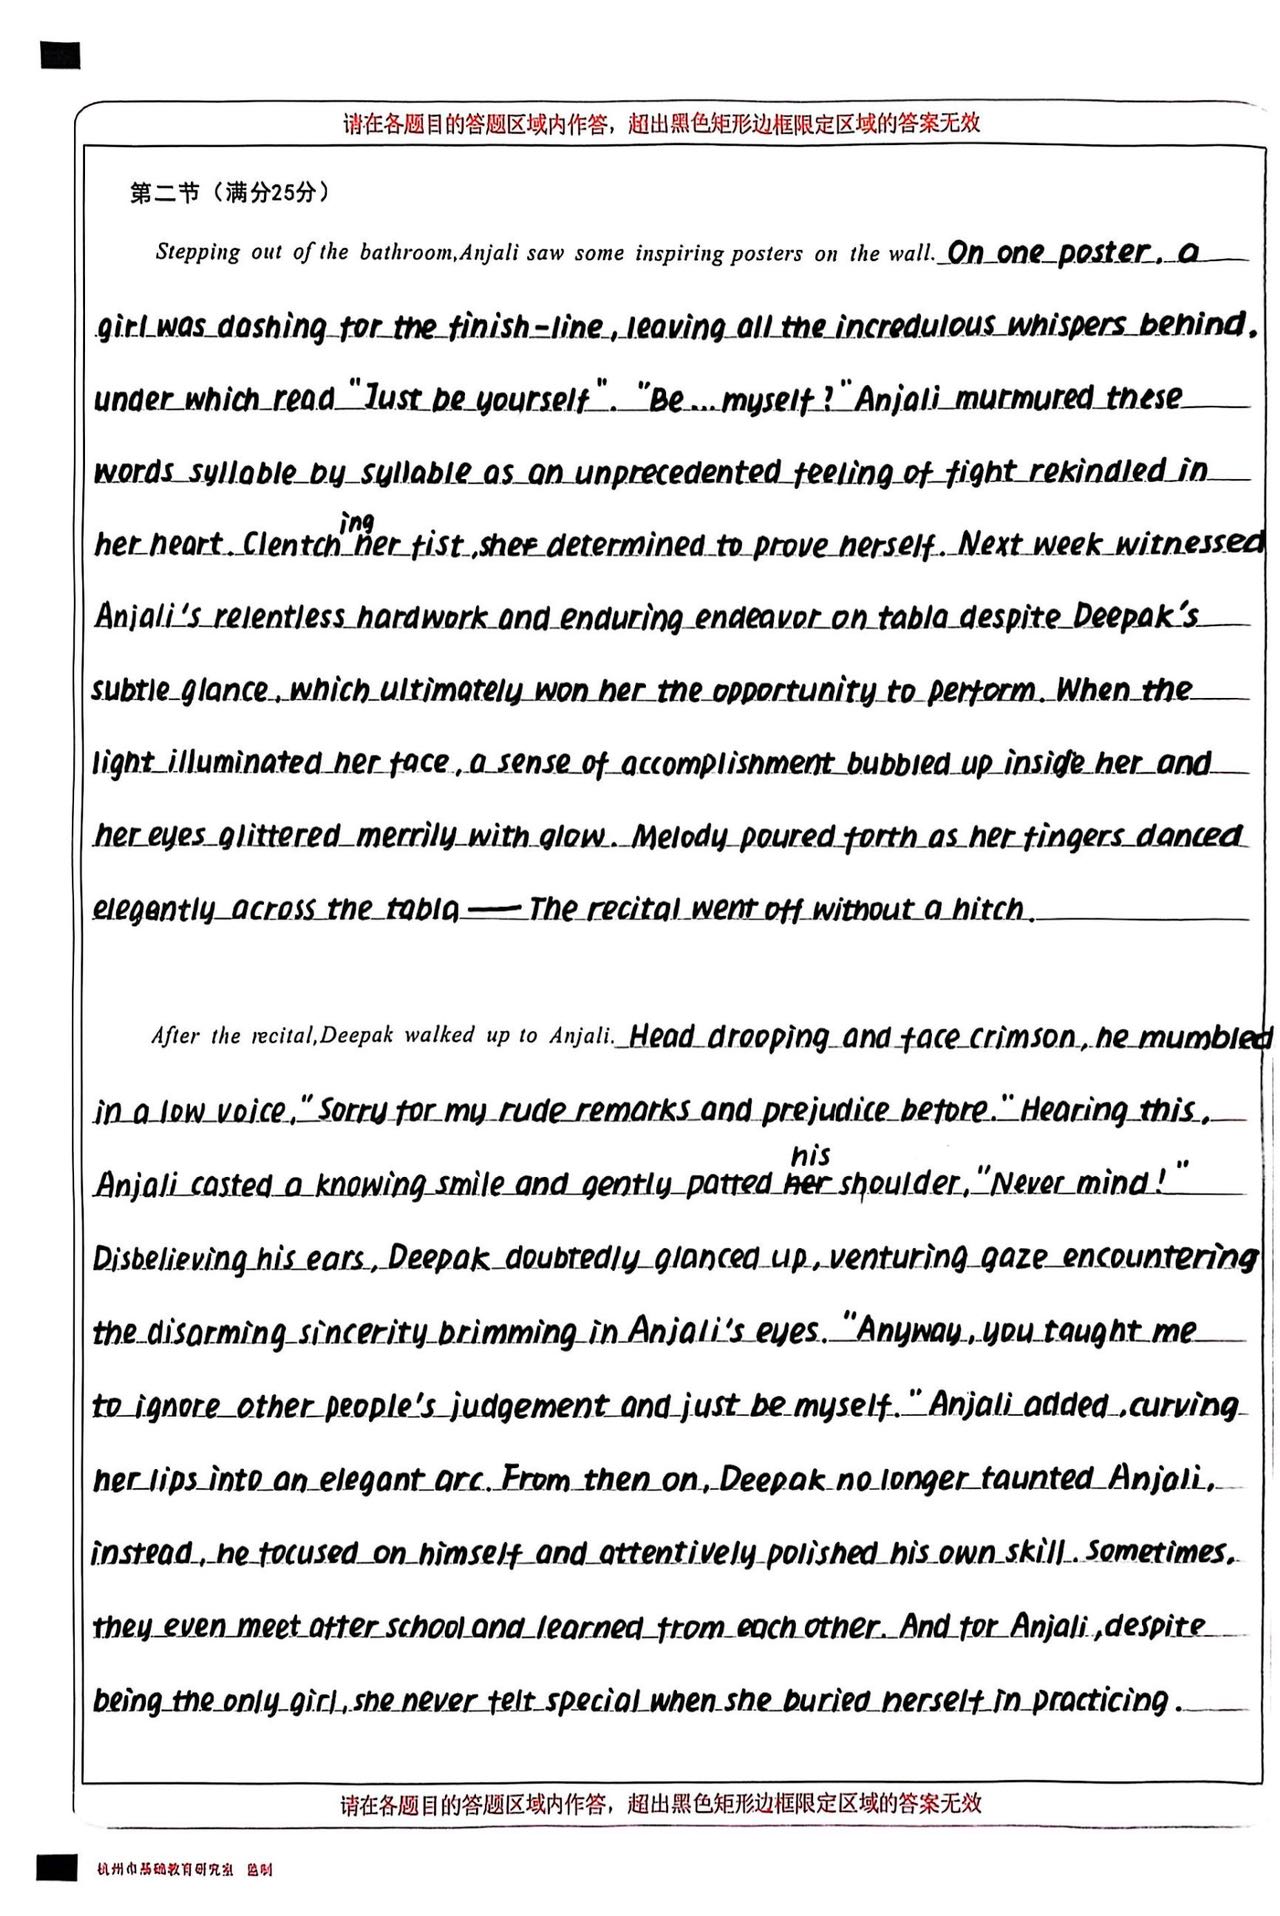 请在各题目的答题区域内作答，超出黑色矩形边框限定区域的答案无效
第二节（满分25分）
Stepping out of the bathroom,Anjali saw some inspiring posters on the wall. On one poster, a
girl was dashing for the finish-line, leaving all the incredulous whispers behind,
under which read "Just be yourself". "Be...myself?" Anjali murmured these
words syllable by syllable as an unprecedented feeling of fight rekindled in
her heart. Clentching her fist, she determined to prove herself. Next week witnessed
Anjali's relentless hardwork and enduring endeavor on tabla despite Deepak's
subtle glance, which ultimately won her the opportunity to perform. When the
light illuminated her face, a sense of accomplishment bubbled up inside her and
her eyes glittered merrily with glow. Melody poured forth as her fingers danced
elegantly across the tabla — The recital went off without a hitch.
After the recital,Deepak walked up to Anjali. Head drooping and face crimson, he mumbled
in a low voice, "Sorry for my rude remarks and prejudice before." Hearing this,
Anjali casted a knowing smile and gently patted his shoulder, "Never mind!"
Disbelieving his ears, Deepak doubtedly glanced up, venturing gaze encountering
the disarming sincerity brimming in Anjali's eyes. "Anyway, you taught me
to ignore other people's judgement and just be myself." Anjali added, curving
her lips into an elegant arc. From then on, Deepak no longer taunted Anjali,
instead, he focused on himself and attentively polished his own skill. Sometimes,
they even meet after school and learned from each other. And for Anjali, despite
being the only girl, she never felt special when she buried herself in practicing.
请在各题目的答题区域内作答，超出黑色矩形边框限定区域的答案无效
杭州市基础教育研究室 监制